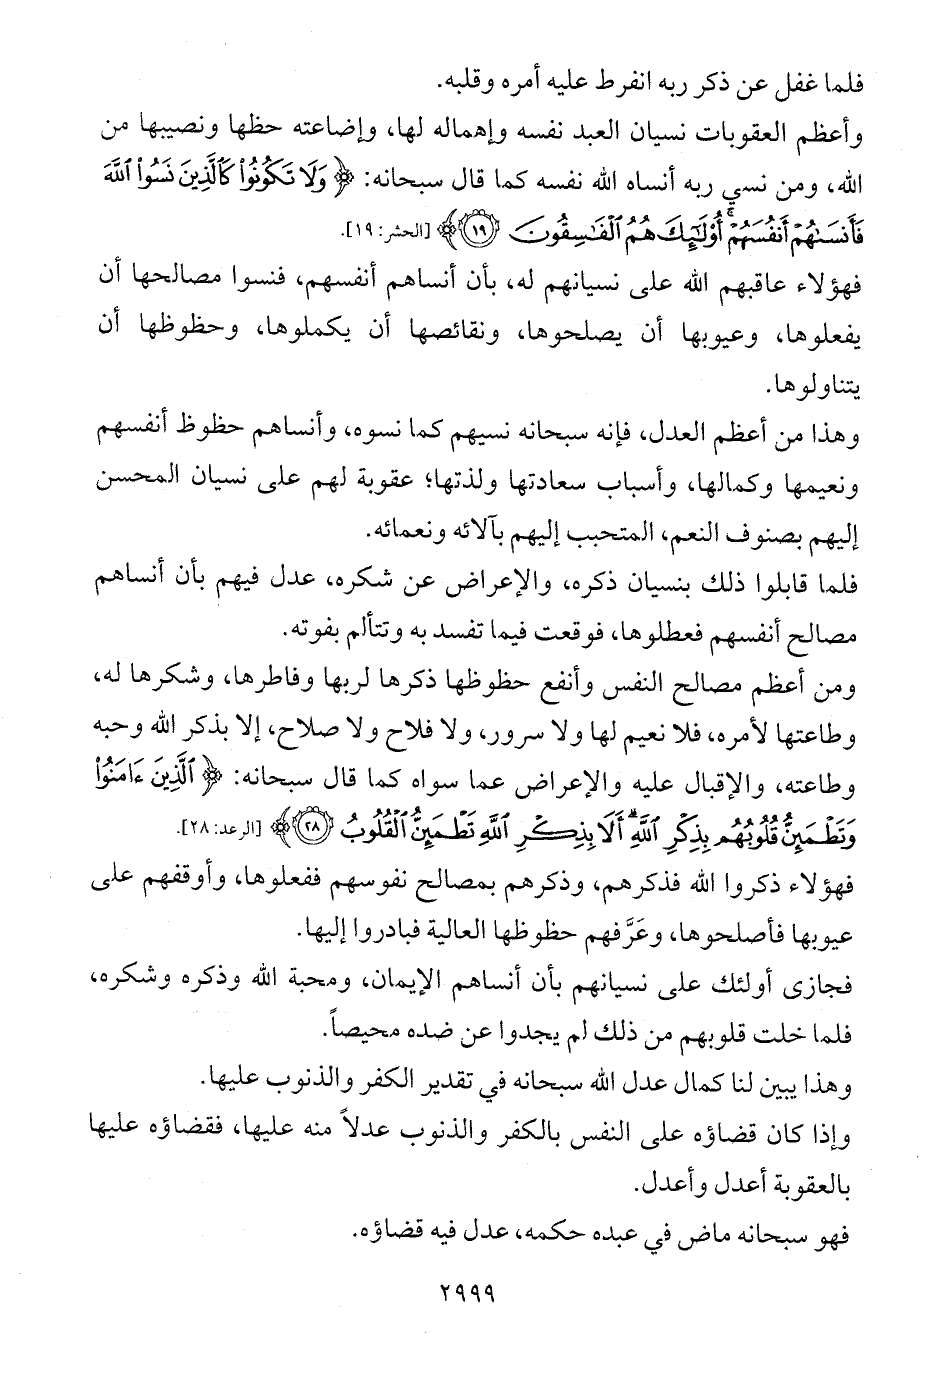 فلما غفل عن ذكر ربه انفرط عليه أمره وقلبه.
وأعظم العقوبات نسيان العبد نفسه وإهماله لها، وإضاعته حظها ونصيبها من
الله، ومن نسي ربه أنساه الله نفسه كما قال سبحانه: ﴿وَلَا تَكُونُوا۟ كَٱلَّذِينَ نَسُوا۟ ٱللَّهَ
فَأَنسَىٰهُمْ أَنفُسَهُمْ ۚ أُو۟لَـٰٓئِكَ هُمُ ٱلْفَـٰسِقُونَ ١٩﴾ [الحشر: ١٩].
فهؤلاء عاقبهم الله على نسيانهم له، بأن أنساهم أنفسهم، فنسوا مصالحها أن
يفعلوها، وعيوبها أن يصلحوها، ونقائصها أن يكملوها، وحظوظها أن
يتناولوها.
وهذا من أعظم العدل، فإنه سبحانه نسيهم كما نسوه، وأنساهم حظوظ أنفسهم
ونعيمها وكمالها، وأسباب سعادتها ولذتها؛ عقوبة لهم على نسيان المحسن
إليهم بصنوف النعم، المتحبب إليهم بآلائه ونعمائه.
فلما قابلوا ذلك بنسيان ذكره، والإعراض عن شكره، عدل فيهم بأن أنساهم
مصالح أنفسهم فعطلوها، فوقعت فيما تفسد به وتتألم بفوته.
ومن أعظم مصالح النفس وأنفع حظوظها ذكرها لربها وفاطرها، وشكرها له،
وطاعتها لأمره، فلا نعيم لها ولا سرور، ولا فلاح ولا صلاح، إلا بذكر الله وحبه
وطاعته، والإقبال عليه والإعراض عما سواه كما قال سبحانه: ﴿ٱلَّذِينَ ءَامَنُوا۟
وَتَطْمَئِنُّ قُلُوبُهُم بِذِكْرِ ٱللَّهِ ۗ أَلَا بِذِكْرِ ٱللَّهِ تَطْمَئِنُّ ٱلْقُلُوبُ ٢٨﴾ [الرعد: ٢٨].
فهؤلاء ذكروا الله فذكرهم، وذكرهم بمصالح نفوسهم ففعلوها، وأوقفهم على
عيوبها فأصلحوها، وعَرَّفهم حظوظها العالية فبادروا إليها.
فجازى أولئك على نسيانهم بأن أنساهم الإيمان، ومحبة الله وذكره وشكره،
فلما خلت قلوبهم من ذلك لم يجدوا عن ضده محيصاً.
وهذا يبين لنا كمال عدل الله سبحانه في تقدير الكفر والذنوب عليها.
وإذا كان قضاؤه على النفس بالكفر والذنوب عدلاً منه عليها، فقضاؤه عليها
بالعقوبة أعدل وأعدل.
فهو سبحانه ماض في عبده حكمه، عدل فيه قضاؤه.
٢٩٩٩